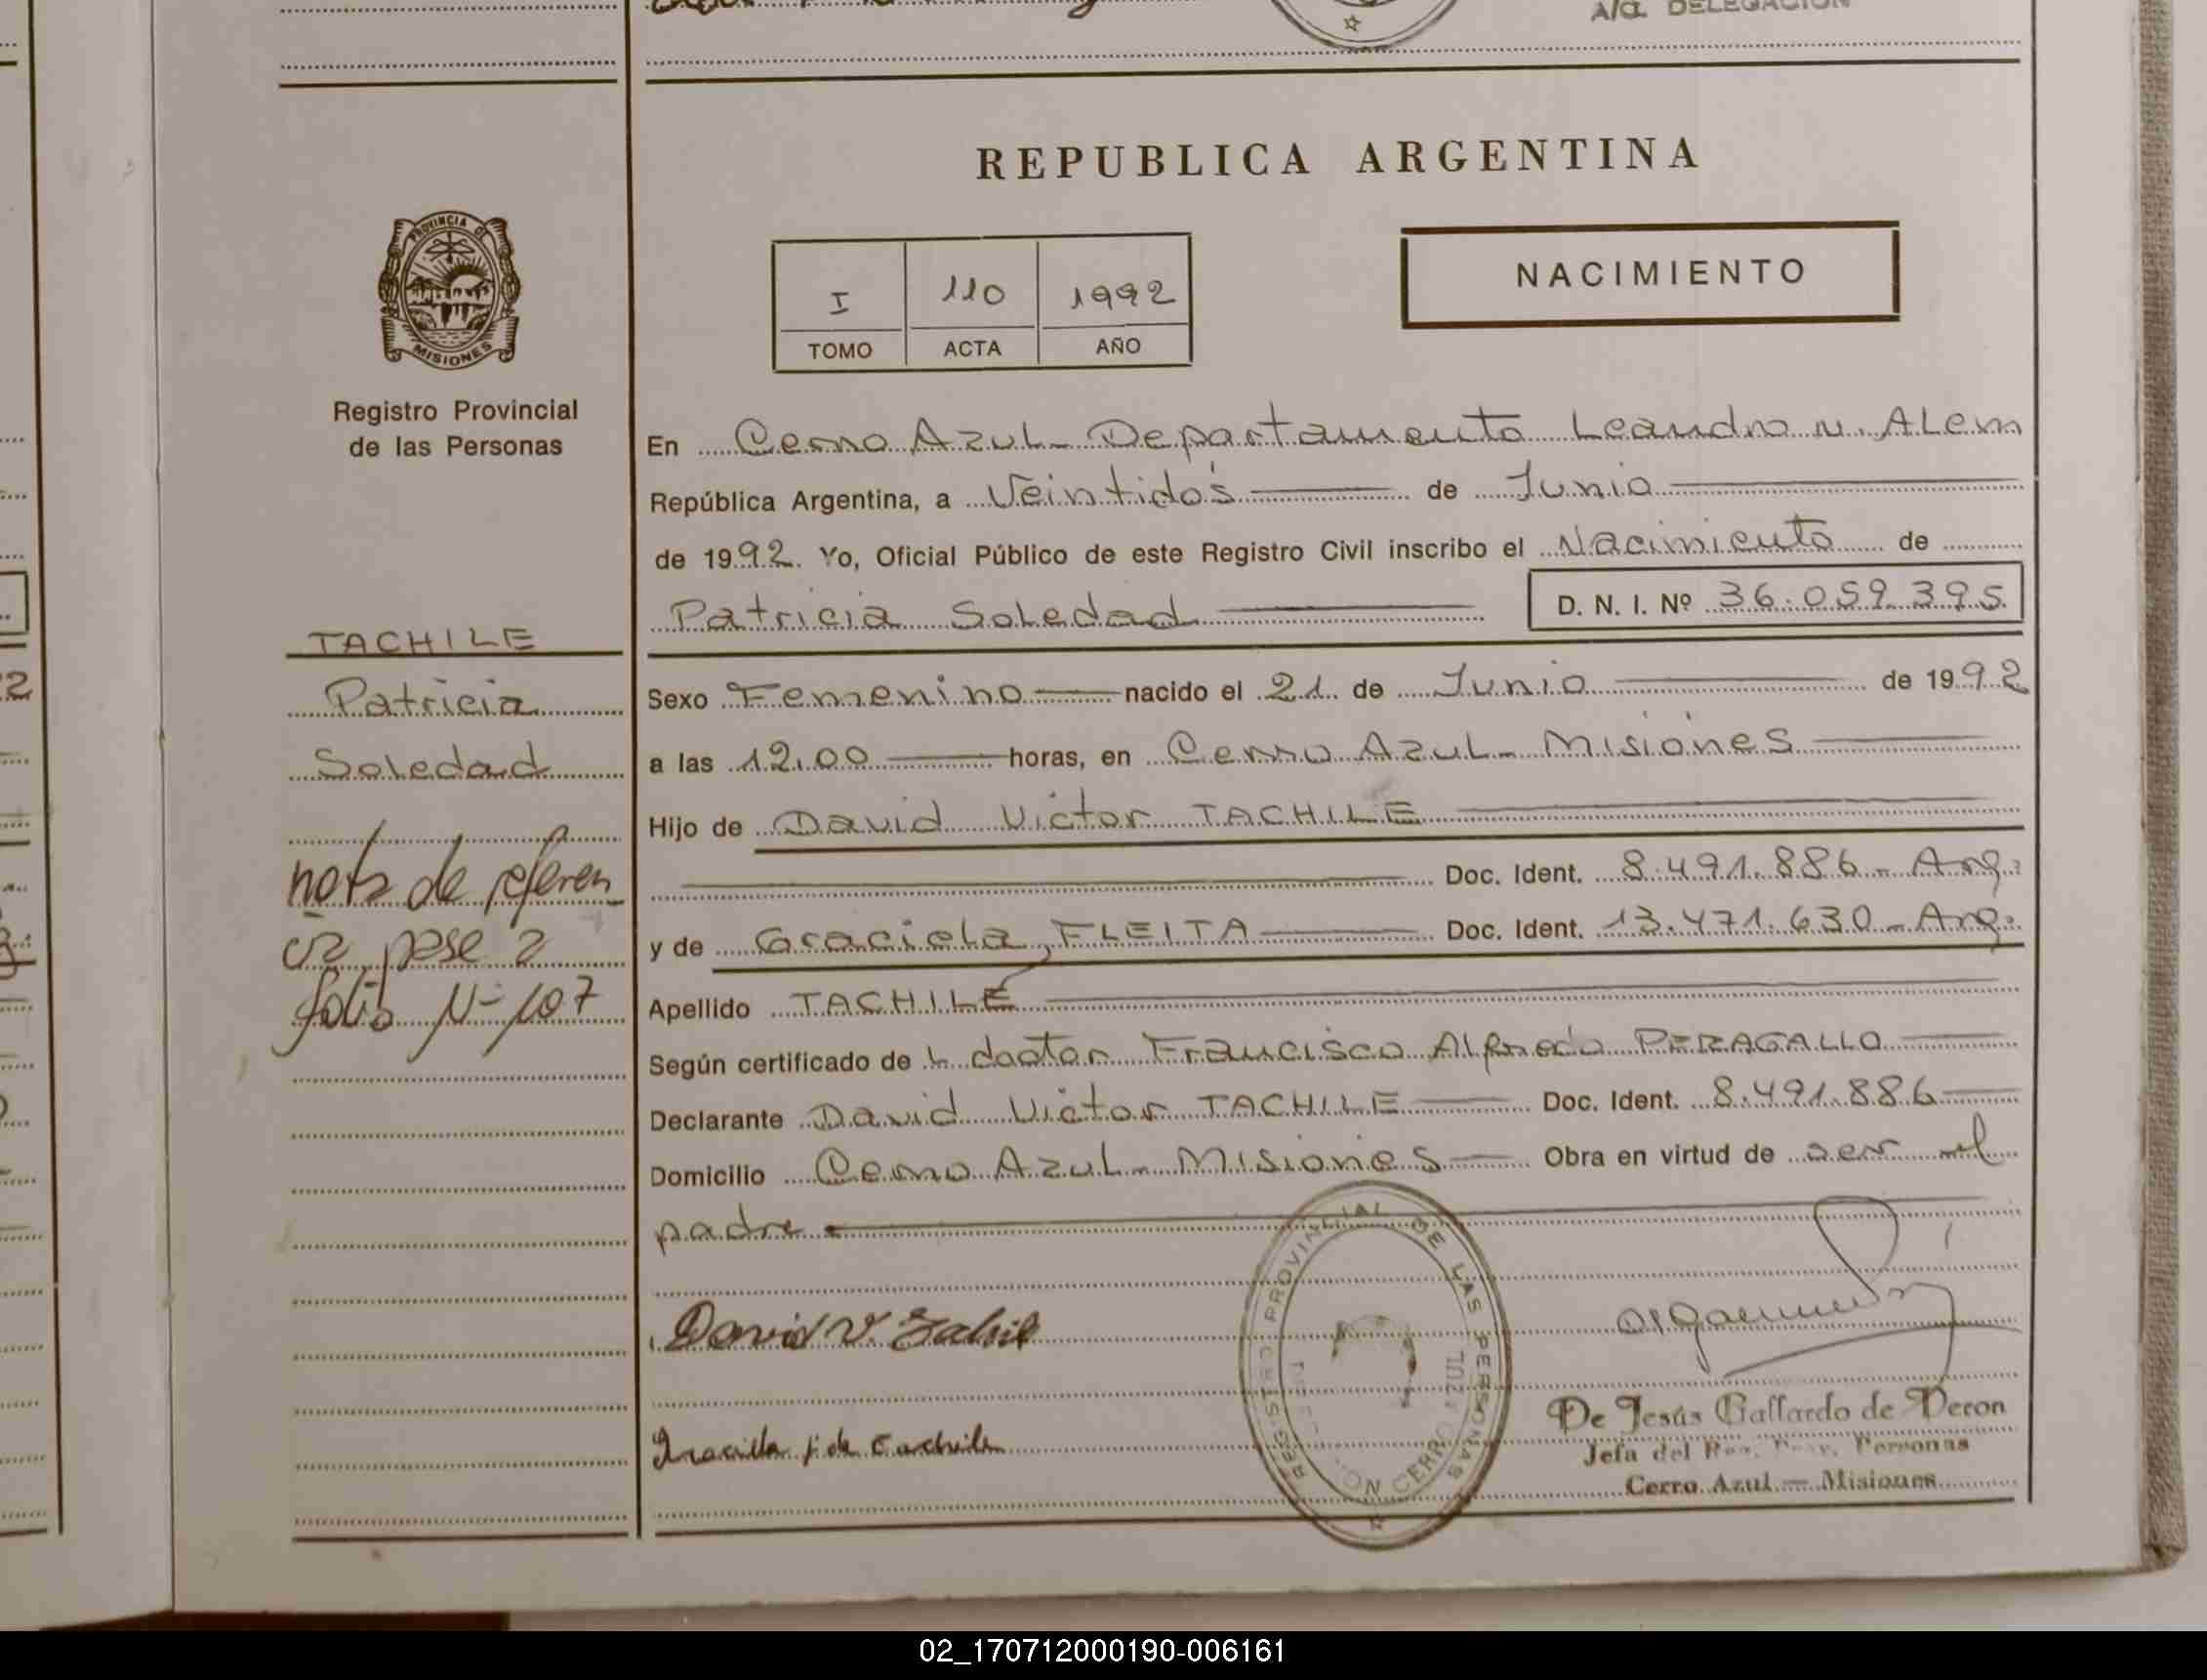 A/C. DELEGACION
REPUBLICA ARGENTINA
PROVINCIA DE
MISIONES
Registro Provincial
de las Personas
I 110 1992
TOMO ACTA AÑO
NACIMIENTO
En Cerro Azul - Departamento Leandro N. Alem
República Argentina, a Veintidós de Junio
de 1992. Yo, Oficial Público de este Registro Civil inscribo el Nacimiento de
Patricia Soledad D. N. I. Nº 36.059.395
TACHILE
Patricia
Soledad
nota de referen
cia pase a
folio Nº 107
Sexo Femenino nacido el 21 de Junio de 1992
a las 12,00 horas, en Cerro Azul - Misiones
Hijo de David Victor TACHILE
Doc. Ident. 8.491.886 - Arg.
y de Graciela, FLEITA Doc. Ident. 13.471.630 - Arg.
Apellido TACHILE
Según certificado de L doctor Francisco Alfredo PERAGALLO
Declarante David Victor TACHILE Doc. Ident. 8.491.886
Domicilio Cerro Azul - Misiones Obra en virtud de ser el
padre
David V.
REGISTRO PROVINCIAL DE LAS PERSONAS
CERRO AZUL
De Jesús Gallardo de Deron
Jefa del Personas
Cerro Azul — Misiones
02_170712000190-006161